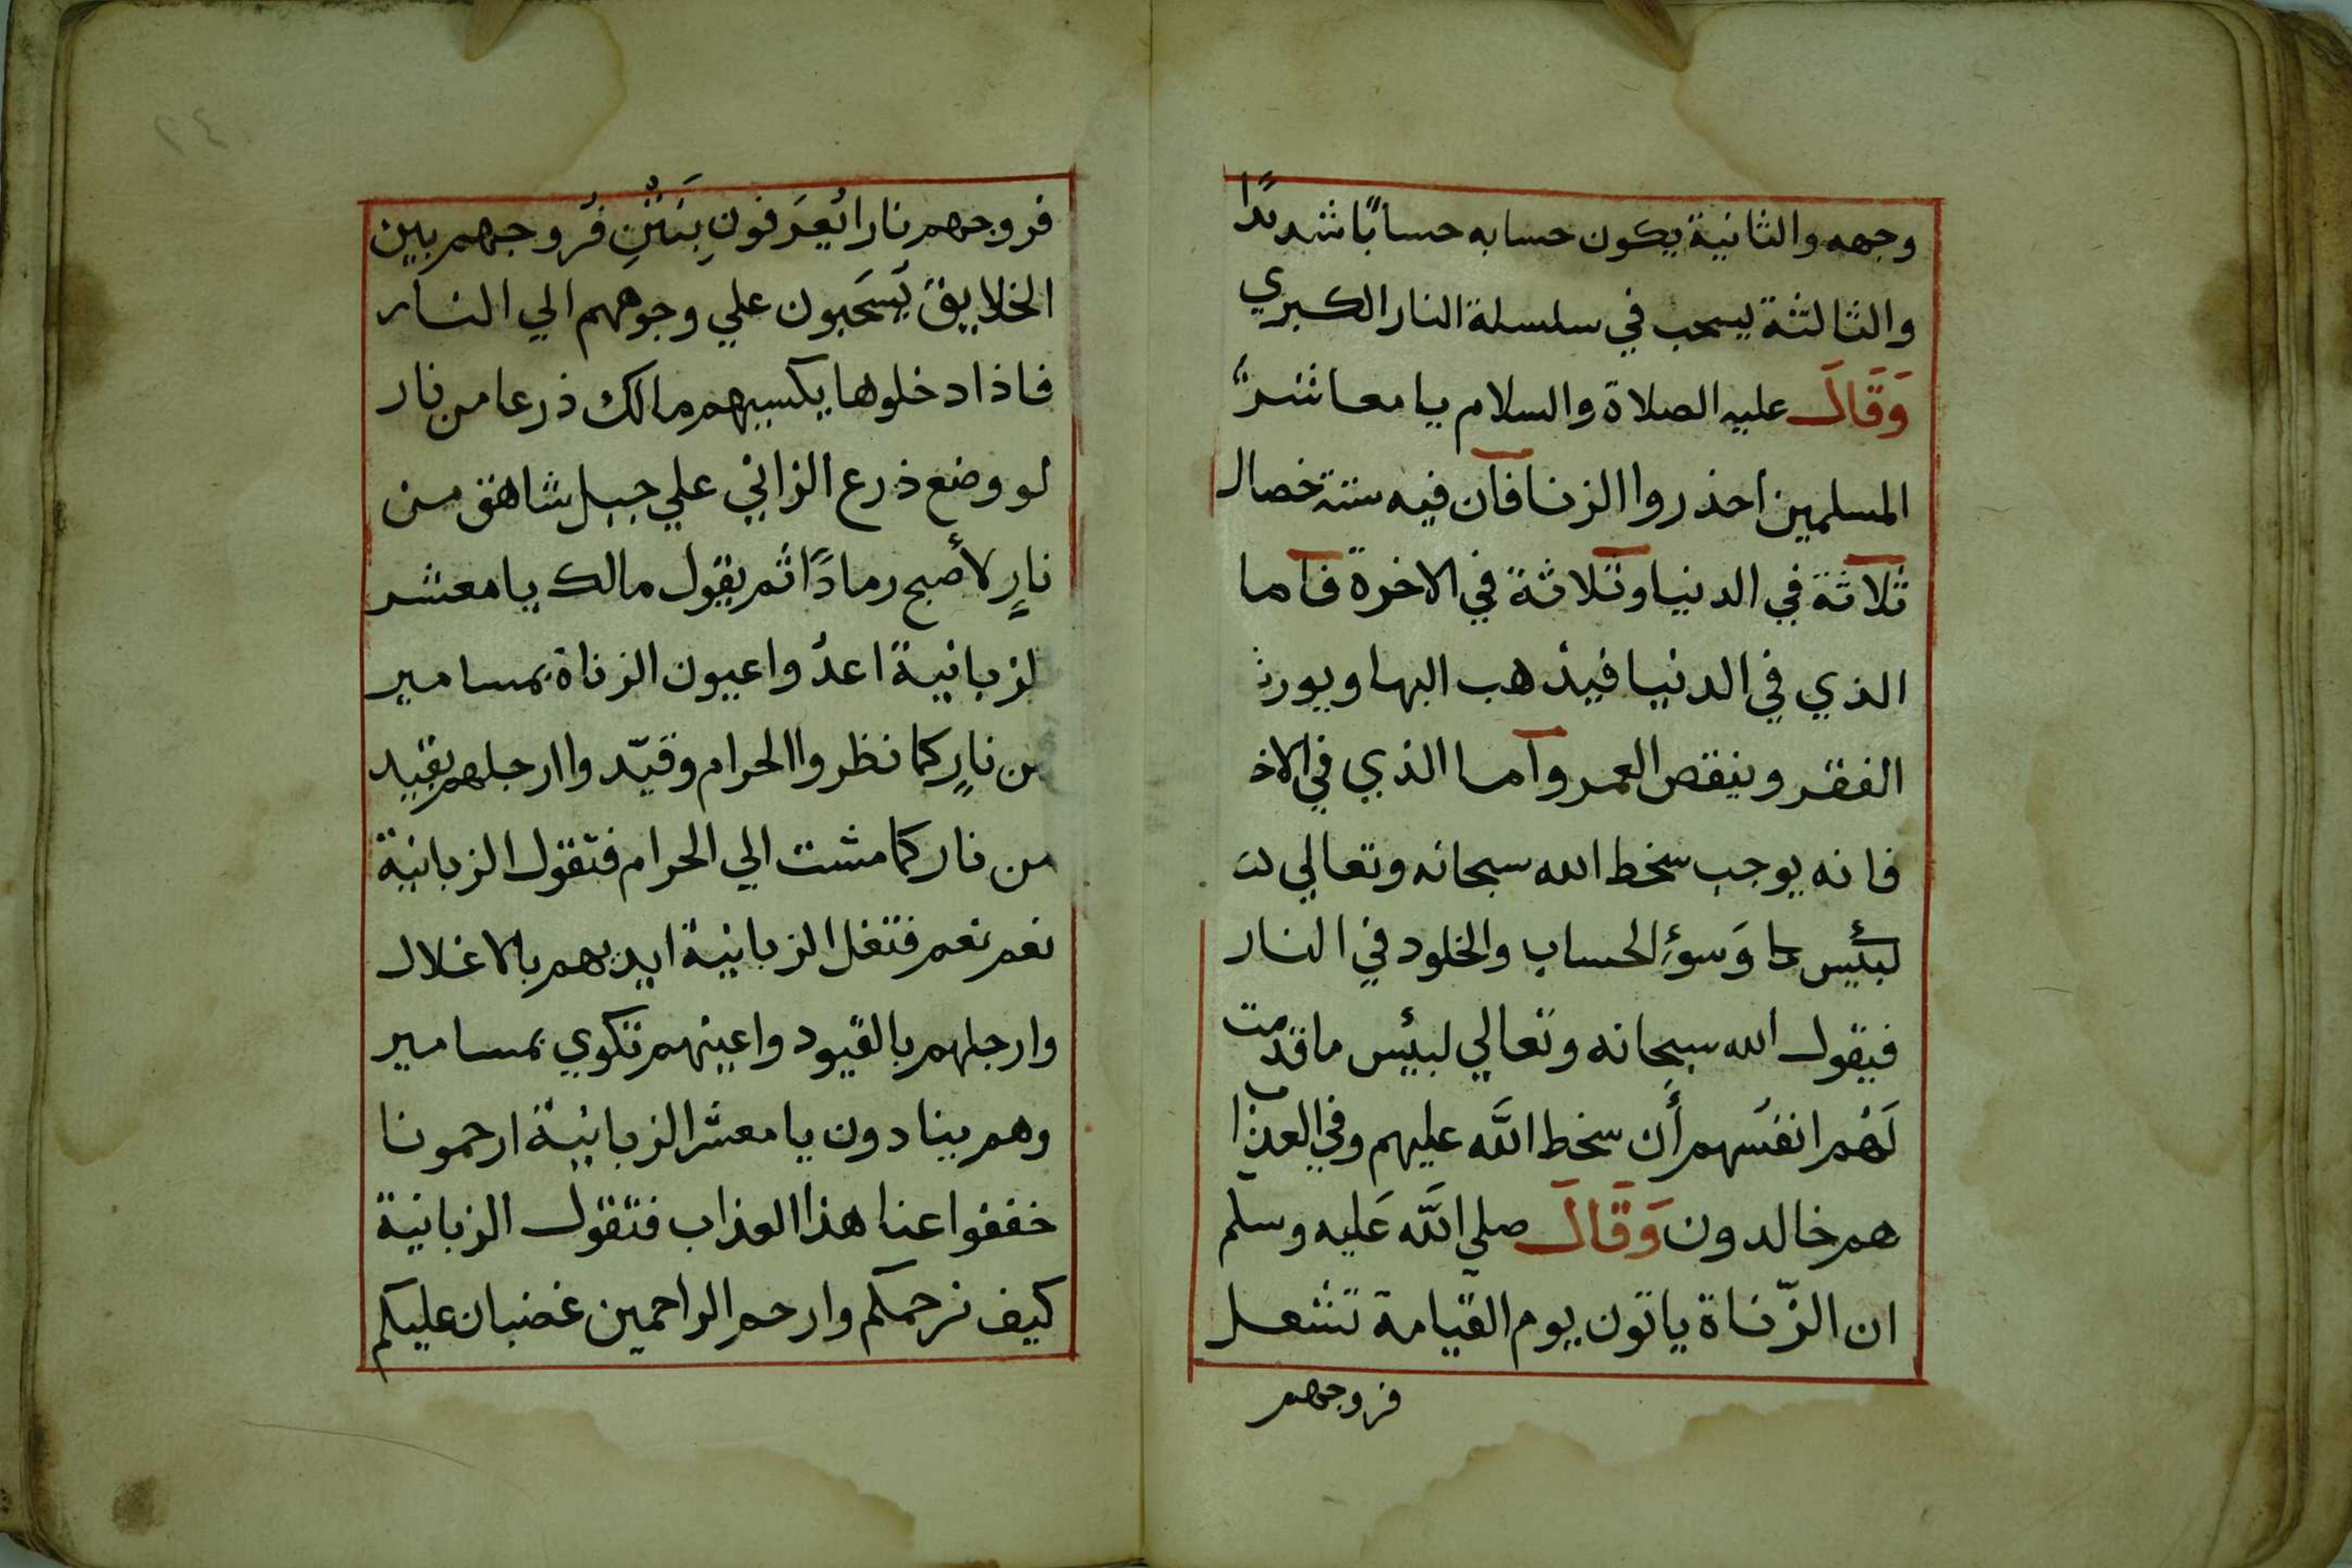 وجهه والثانية يكون حسابه حسابًا شديدًا
والثالثة يسحب في سلسلة النار الكبري
وَقَالَ عليه الصلاة والسلام يا معاشرَ
المسلمين احذروا الزنا فآن فيه ستة خصال
ثلاثة في الدنيا وثلاثة في الاخرة فآما
الذي في الدنيا فيذهب البها ويورث
الفقر وينقص العمر وآما الذي في الاخ
فانه يوجب سخط الله سبحانه وتعالي
لبئيس ما وَسوءِ الحساب والخلود في النار
فيقول الله سبحانه وتعالي لبئيس ما قدمت
لَهُم انفسُهم أَن سخط اللَّه عليهم وفي العذاب
هم خالدون وَقَالَ صلي اللَّه عَليه وسلم
ان الزّناة ياتون يوم القيامة تشعل
فروجهم
٢٤
فروجهم نارا يُعرَفون بِنَتْنِ فُروجهم بين
الخلايق يُسَحَبون علي وجوههم الي النار
فاذا دخلوها يكسيهم مالك ذرعا من نار
لو وضع ذرع الزاني علي جبل شاهق من
نارٍ لأصبح رمادًا ثم يقول مالك يا معشر
لزبانية اعدُوا عيون الزناة بمسامير
من نارٍ كما نظروا الحرام وقيّدوا ارجلهم بقيد
من نار كما مشت الي الحرام فتقول الزبانية
نعم نعم فتغل الزبانية ايديهم بالاغلال
وارجلهم بالقيود واعينهم تكوي بمسامير
وهم ينادون يا معشر الزبانية ارحمونا
خففوا عنا هذا العذاب فتقول الزبانية
كيف نرحمكم وارحم الراحمين غضبان عليكم